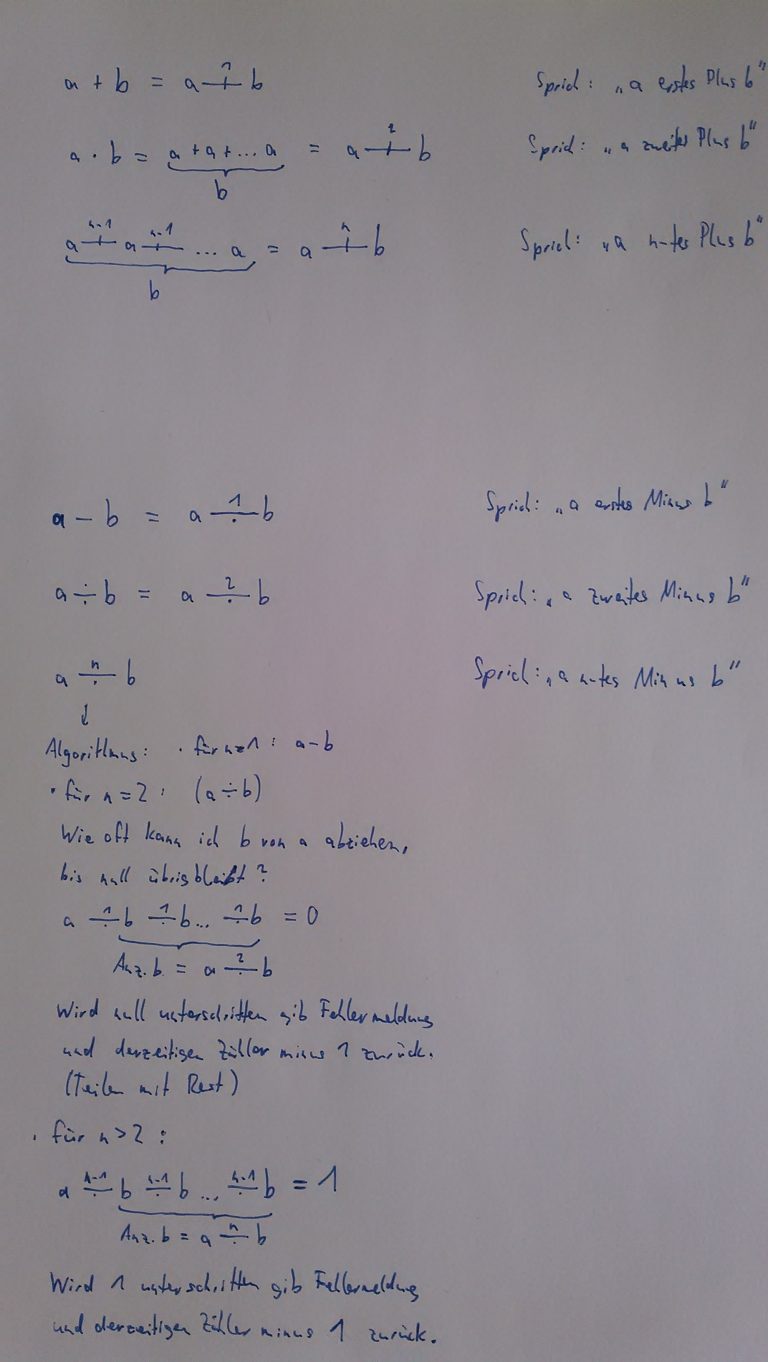 a + b = a +¹ b Sprich: „a erstes Plus b"
a · b = a + a + ... a = a +² b Sprich: „a zweites Plus b"
b
a +ⁿ⁻¹ a +ⁿ⁻¹ ... a = a +ⁿ b Sprich: „a n-tes Plus b"
b
a - b = a ∸¹ b Sprich: „a erstes Minus b"
a ÷ b = a ∸² b Sprich: „a zweites Minus b"
a ∸ⁿ b Sprich: „a n-tes Minus b"
↓
Algorithmus: · für n=1: a-b
· für n=2: (a÷b)
Wie oft kann ich b von a abziehen,
bis null übrigbleibt?
a ∸¹ b ∸¹ b ... ∸¹ b = 0
Anz. b = a ∸² b
Wird null unterschritten gib Fehlermeldung
und derzeitigen Zähler minus 1 zurück.
(Teilen mit Rest)
· für n>2:
a ∸ⁿ⁻¹ b ∸ⁿ⁻¹ b ... ∸ⁿ⁻¹ b = 1
Anz. b = a ∸ⁿ b
Wird 1 unterschritten gib Fehlermeldung
und derzeitigen Zähler minus 1 zurück.